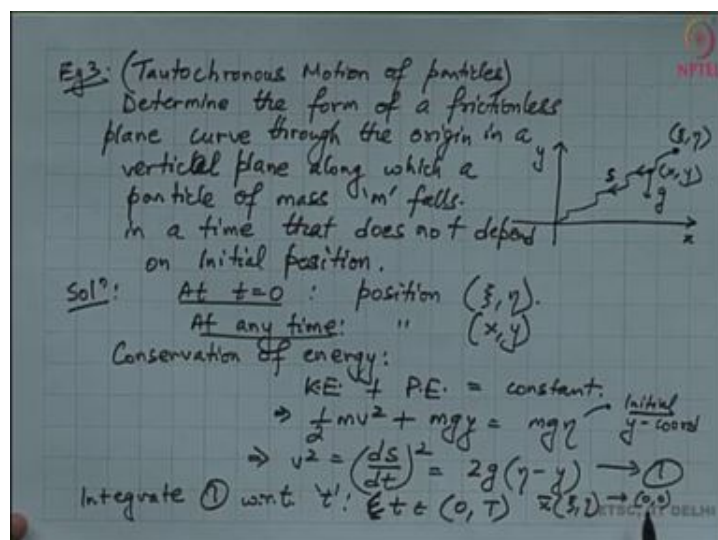 Eg3: (Tautochronous Motion of particles)
Determine the form of a frictionless
plane curve through the origin in a
vertical plane along which a
particle of mass 'm' falls.
in a time that does not depend
on Initial position.
y
(ξ,η)
s
(x,y)
g
x
Solⁿ: At t=0 : position (ξ,η).
At any time: " (x,y)
Conservation of energy:
K.E. + P.E. = constant.
⇒ ½mv² + mgy = mgη
initial
y-coord
⇒ v² = (ds/dt)² = 2g(η-y) → ①
Integrate ① w.r.t. 't': t ∈ (0,T) (ξ,η) → (0,0)
NPTEL
ETSC, IIT DELHI